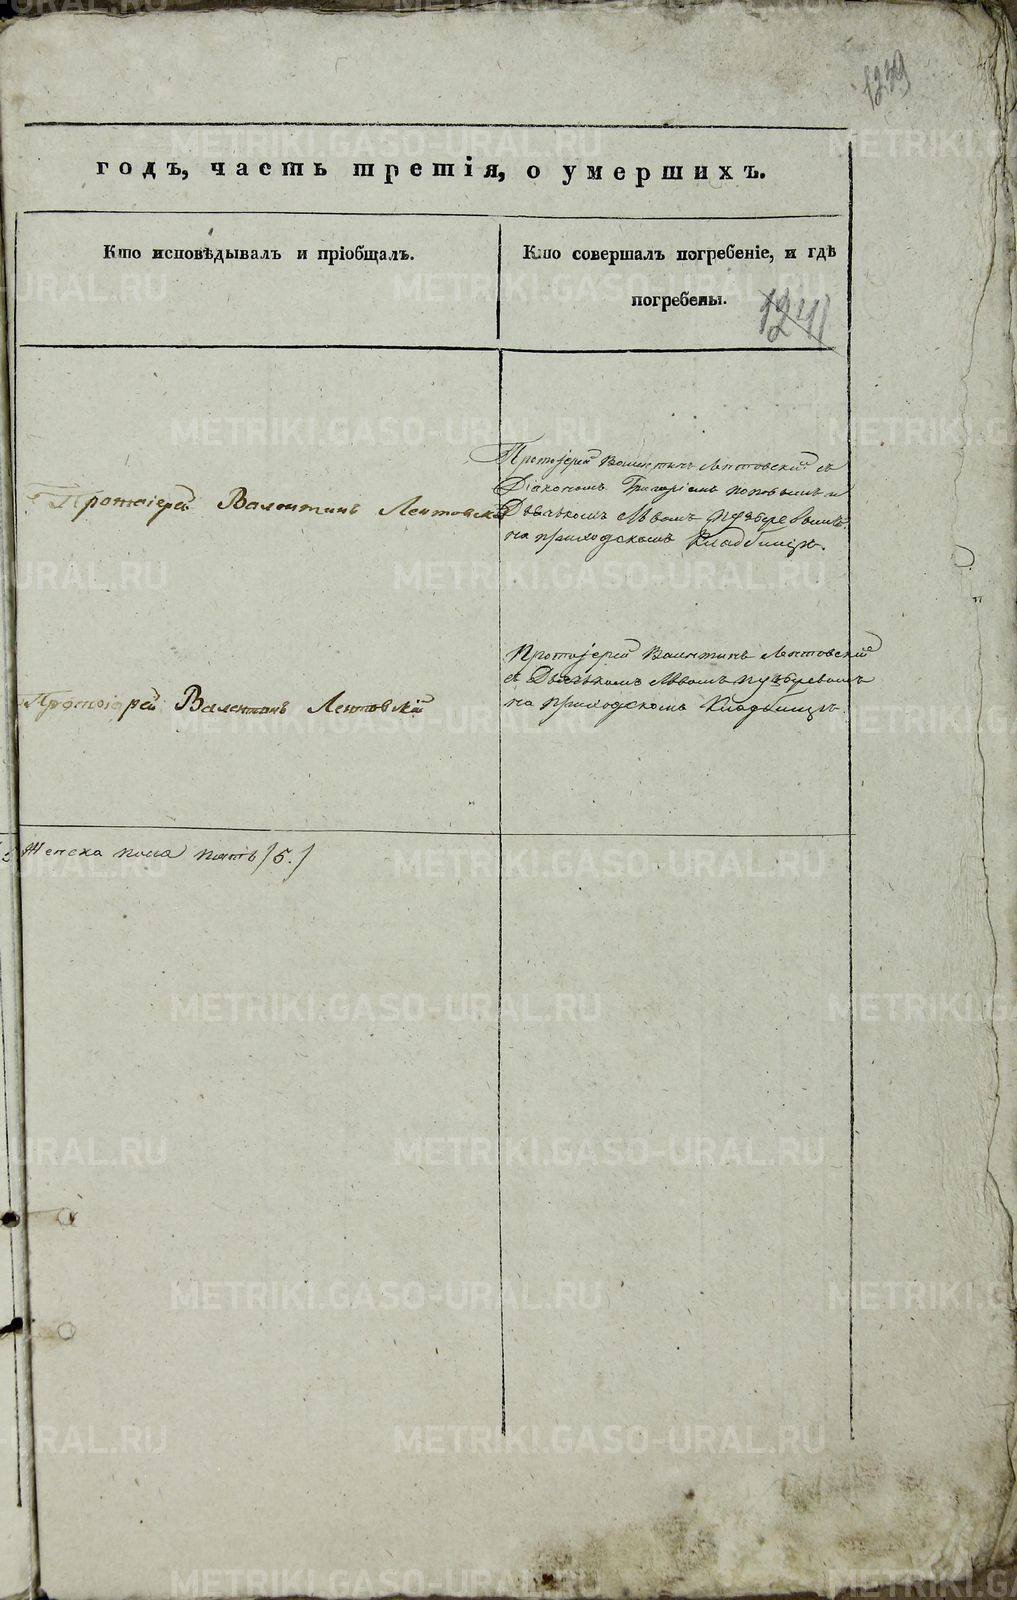 1239
годъ, часть третія, о умершихъ.
Кто исповѣдывалъ и пріобщалъ.
Кто совершалъ погребеніе, и гдѣ
погребены.
1241
Протоіерей Валентинъ Лентовскій
Протоіерей Валентинъ Лентовскій съ
Діакономъ Григоріемъ Поповымъ и
Дьячкомъ Львомъ Пузыревымъ
на приходскомъ кладбищѣ.
Протоіерей Валентинъ Лентовскій
Протоіерей Валентинъ Лентовскій
съ Дьячкомъ Львомъ Пузыревымъ
на приходскомъ кладбищѣ.
Женска пола пять /5./
METRIKI.GASO-URAL.RU